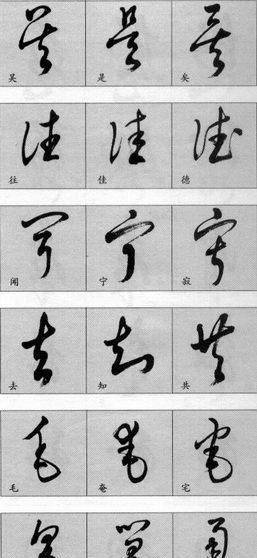 吴 是 矣
往 佳 德
闻 宁 寂
去 知 共
毛 奄 宅